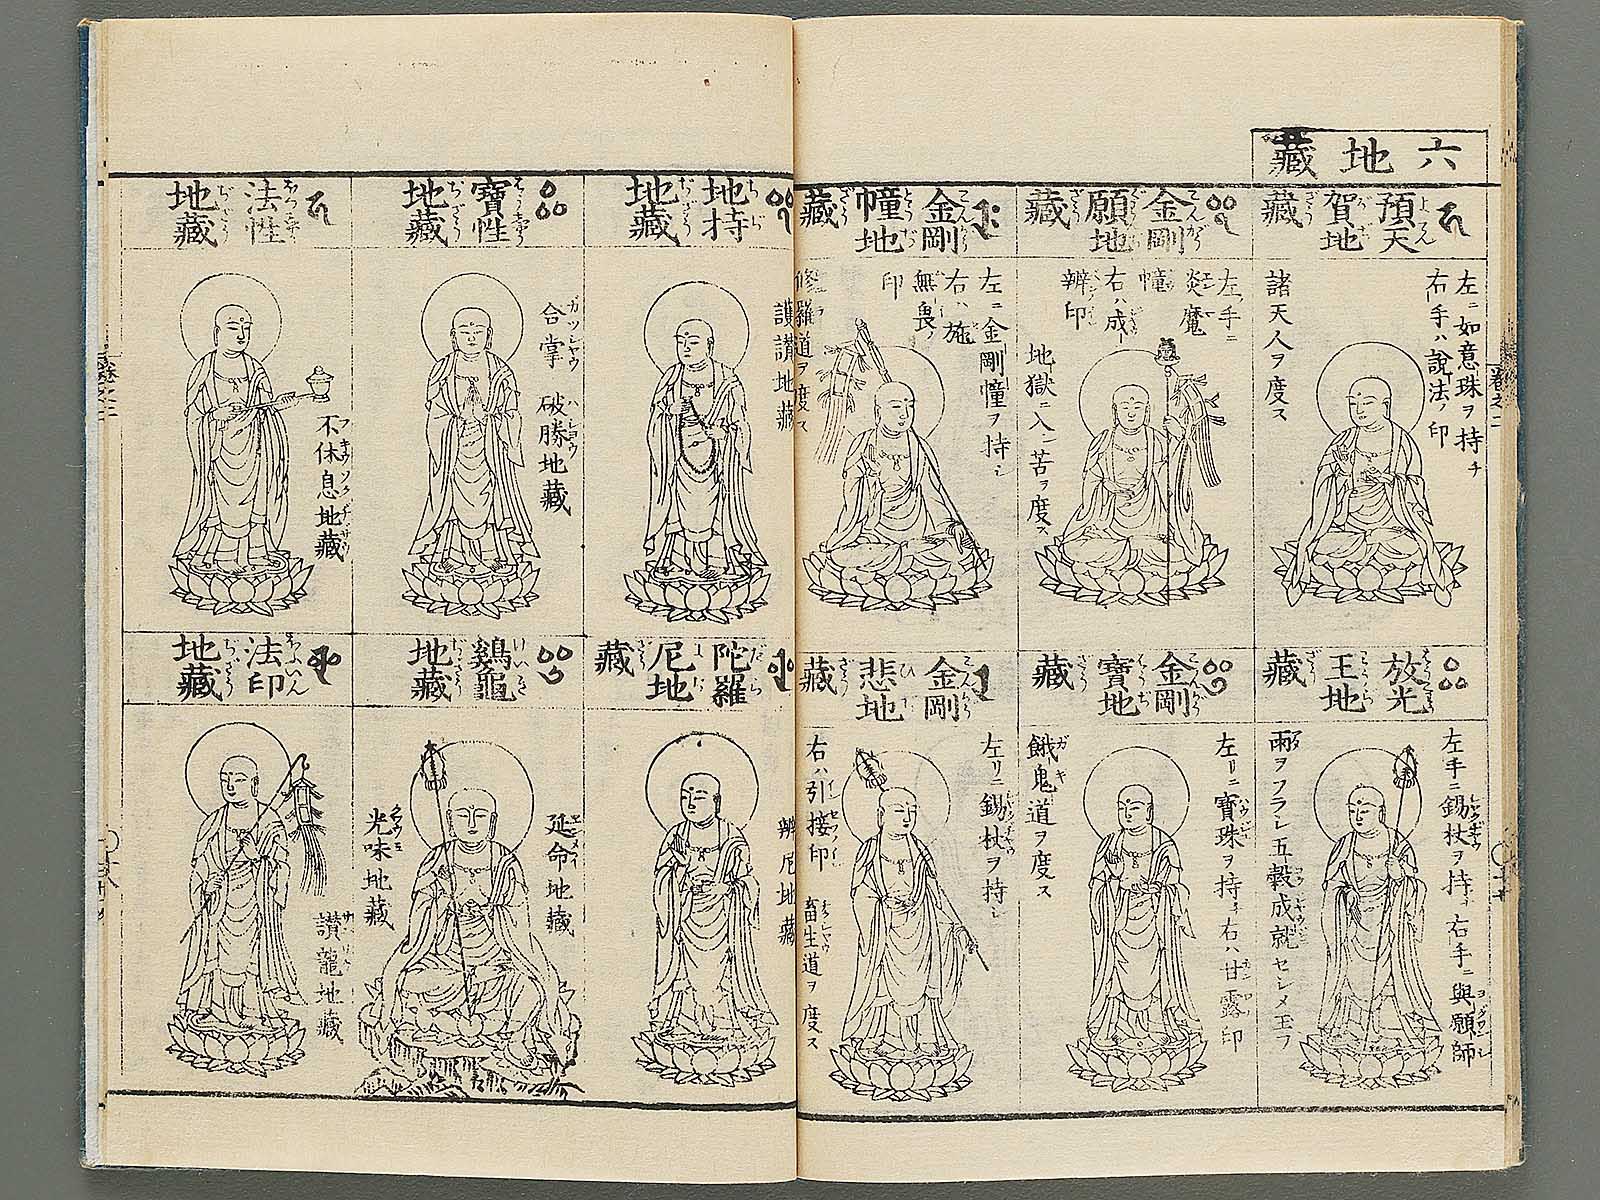 六地藏
預天賀地藏
左ニ如意珠ヲ持チ
右手ハ說法ノ印
諸天人ヲ度ス
金剛願地藏
左手ニ
炎魔
幢
右ハ成
辨印
地獄ニ入ン苦ヲ度ス
金剛幢地藏
左ニ金剛幢ヲ持シ
右ハ施
無畏ノ
印
修羅道ヲ度ス
放光王地藏
左手ニ錫杖ヲ持チ右手ニ與願師
雨ヲフラシ五穀成就セシメ玉フ
金剛寶地藏
左リニ寶珠ヲ持チ右ハ甘露印
餓鬼道ヲ度ス
金剛悲地藏
左リニ錫杖ヲ持シ
右ハ引接印
畜生道ヲ度ス
地持地藏
護讃地藏
寶性地藏
合掌
破勝地藏
法性地藏
不休息地藏
陀羅尼地藏
辨尼地藏
鷄龜地藏
延命地藏
光味地藏
法印地藏
讃龍地藏